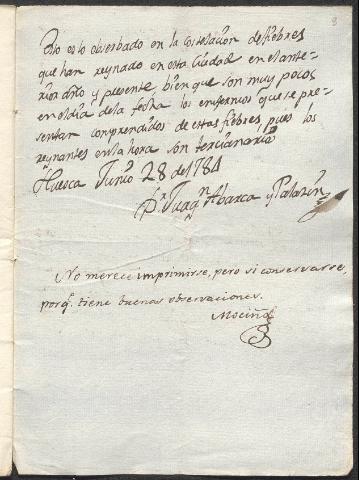 Esto es lo obserbado en la Costelacion de fiebres
que han reynado en esta Ciudad en el ante-
rior año y presente, bien que son muy pocos
en el dia de la fecha los enfermos que se pre-
sentan comprendidos de estas fiebres, pues las
reynantes en la hora son tercianarias
Huesca Junio 28 de 1784
Dr. Juaqn. Abarca y Palazin
No merece imprimirse, pero si conservarse,
porq. tiene buenas observaciones.
Mociño